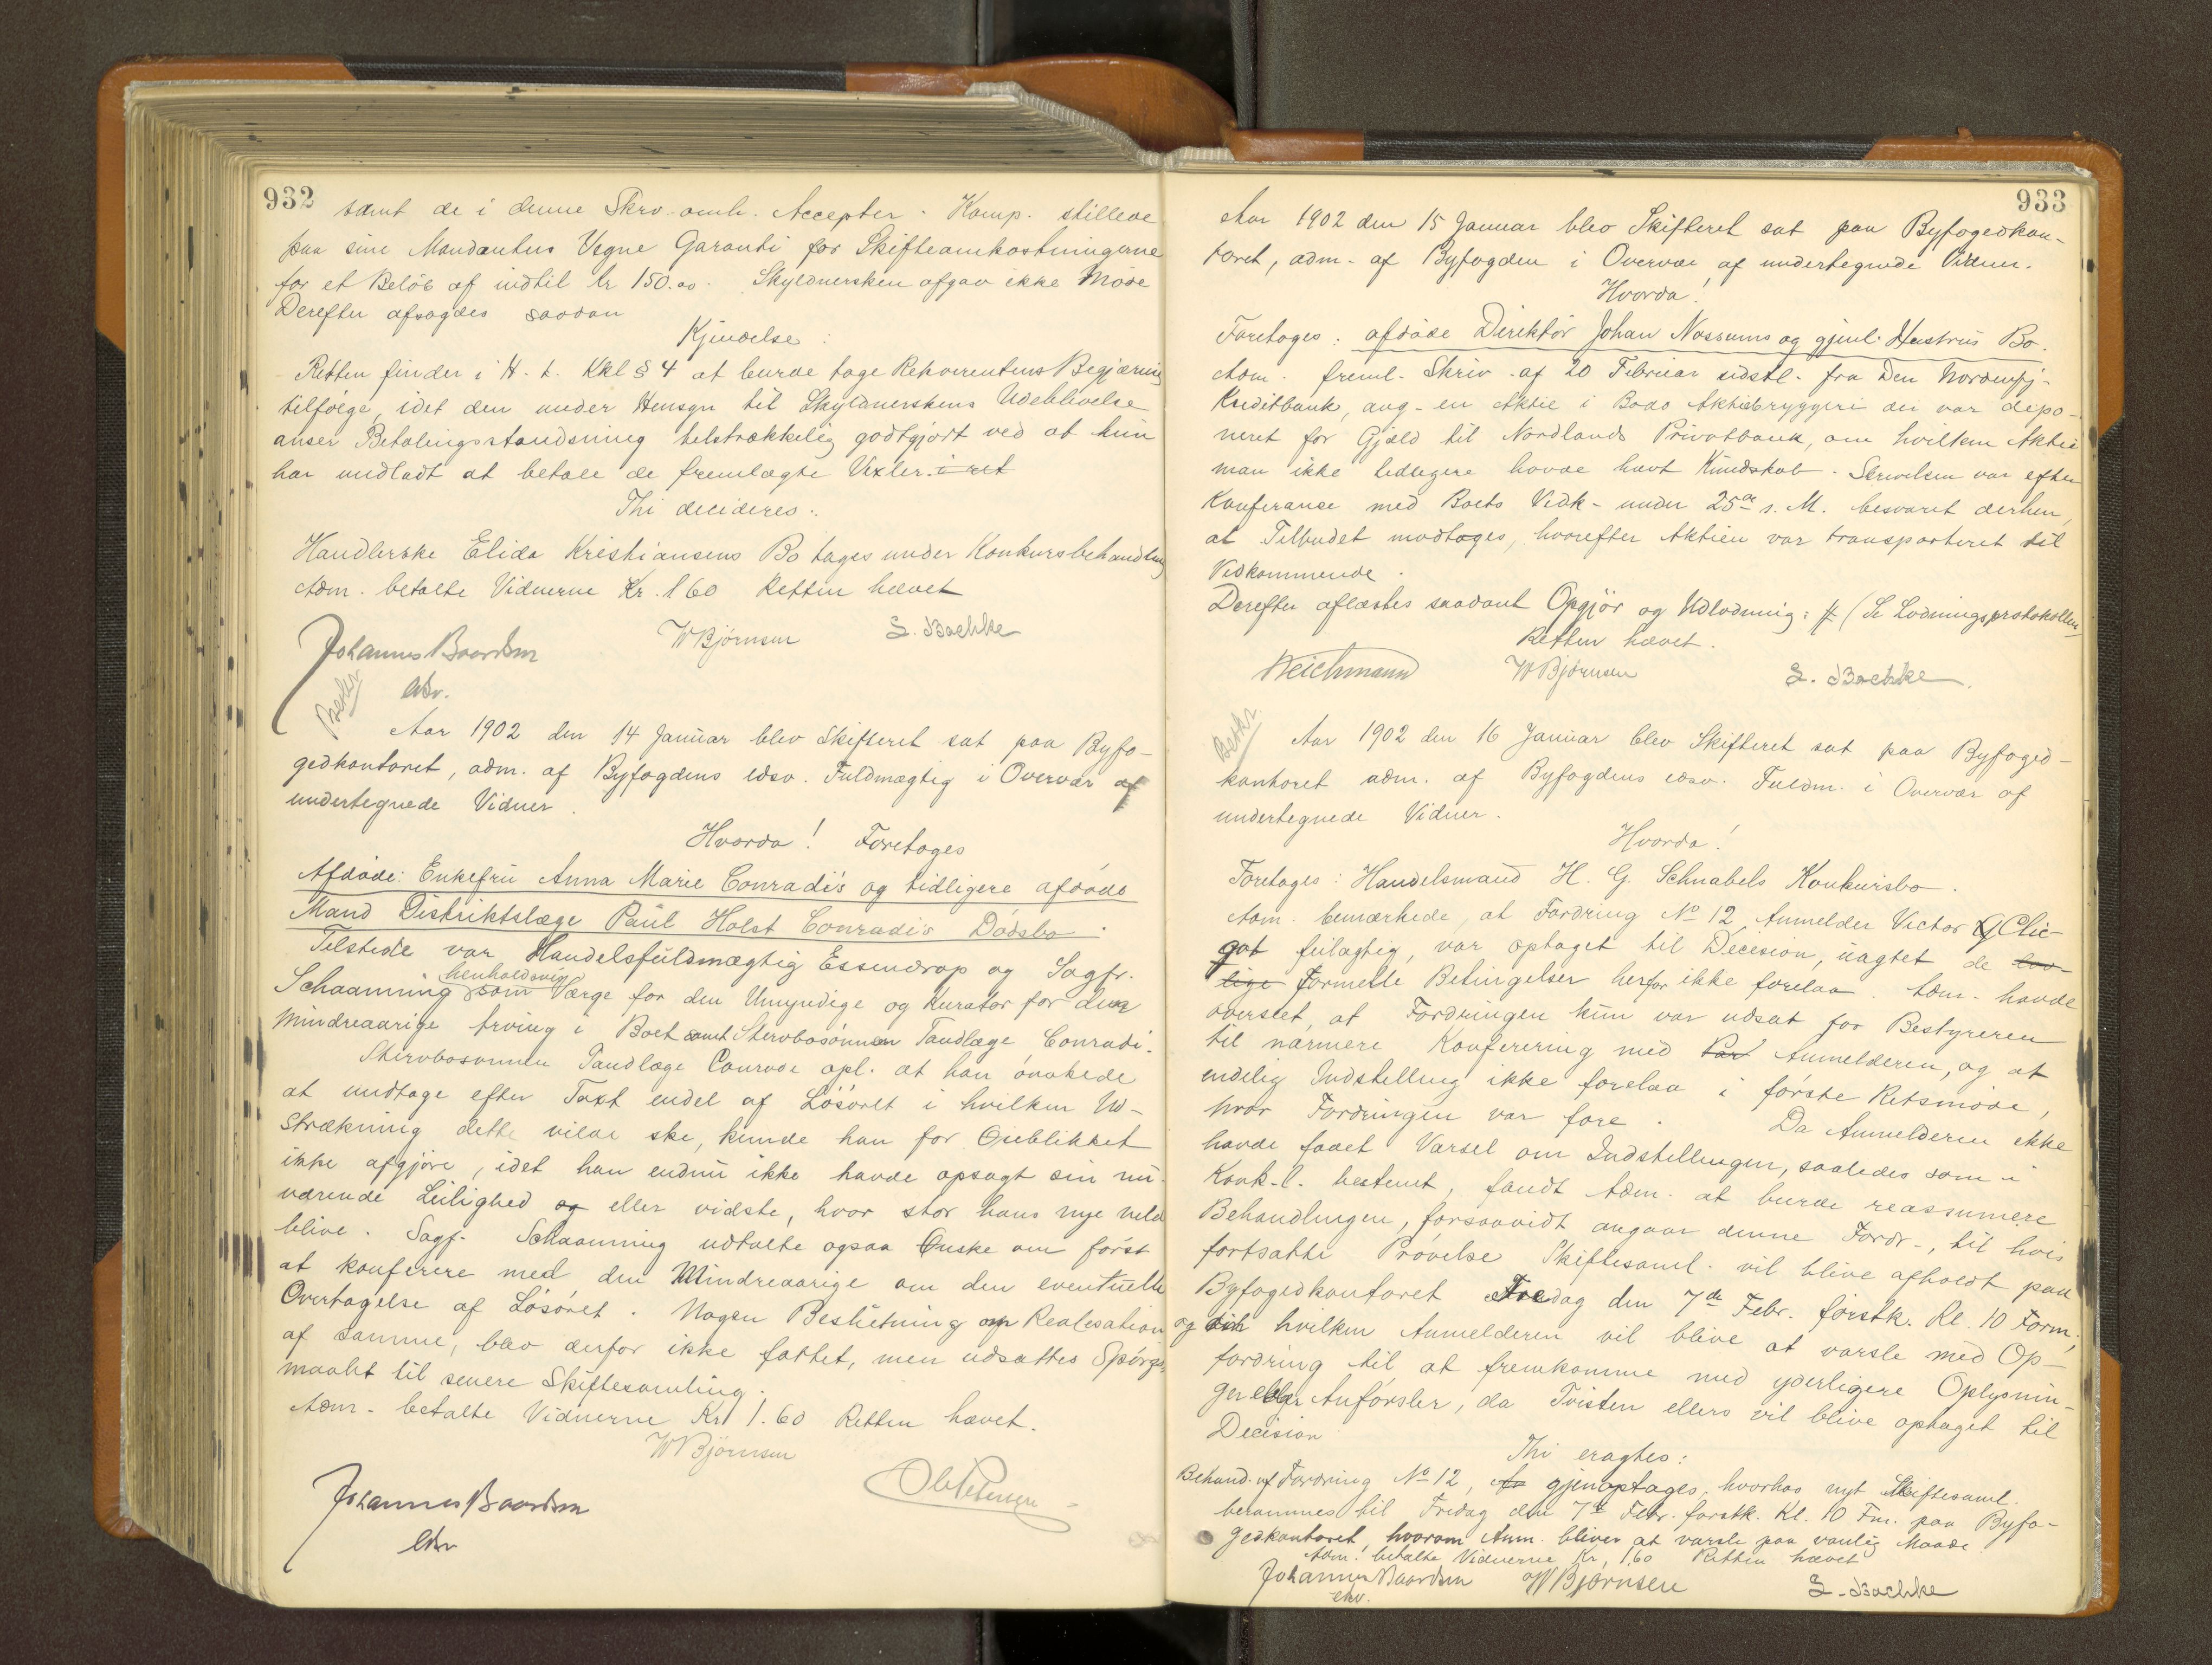 932
samt de i denne Skrv. omh. Accepter. Komp. stillede
paa sine Mandantus Vegne Garanti for Skifteomkostningerne
for et Beløb af indtil kr 150.00. Skyldnersken afgav ikke Møde
Derefter afsagdes saadan
Kjendelse:
Retten finder i H. t. Kkl § 4 at burde tage Rekvirentens Begjæring
tilfølge, idet den under Hensyn til Skyldnerskens Udeblivelse
anser Betalingsstandsning tilstrækkelig godtgjort ved at hun
har undladt at betale de fremlagte Vexler. i ret
Thi decideres:
Handlerske Elida Kristiansens Bo tages under Konkursbehandling
Adm. betalte Vidnerne Kr. 1 60 Retten hævet
Johannes Baardsen W Bjørnsen L. Bachke
 edsv.
Beskr
Aar 1902 den 14 Januar blev Skifteret sat paa Byfo-
gedkontoret, adm. af Byfogdens edsv. Fuldmægtig i Overvær af
undertegnede Vidner.
Hvorda! Foretoges
Afdøde: Enkefru Anna Marie Conradi's og tidligere afdøde
Mand Distriktslæge Paul Holst Conradi's Dødsbo.
Tilstede var Handelsfuldmægtig Essendrop og Sagfr.
Schaanning henholdsvis som Værge for den Umyndige og Kurator for den
mindreaarige Arving i Boet samt Stervbosønnen Tandlæge Conradi.
Stervbosønnen Tandlæge Conrade opl. at han ønskede
at undtage efter Taxt endel af Løsøret i hvilken Ud-
strækning dette vilde ske, kunde han for Øieblikket
ikke afgjøre, idet han endnu ikke havde opsagt sin nu-
værende Leilighed og eller vidste, hvor stor hans nye vilde
blive. Sagf. Schaanning udtalte ogsaa Ønske om først
at konferere med den Mindreaarige om den eventuelle
Overtagelse af Løsøret. Nogen Beslutning om Realisation
af samme, blev derfor ikke fattet, men udsattes Spørgs-
maalet til senere Skiftesamling.
Adm. betalte Vidnerne Kr 1.60 Retten hævet.
W Bjørnsen
Johannes Baardsen Ole Petersen
edsv
933
Aar 1902 den 15 Januar blev Skifteret sat paa Byfogedkon-
toret, adm. af Byfogden i Overvær af undertegnede Vidner.
Hvorda!
Foretoges: afdøde Direktør Johan Nossums og gjenl. Hustrus Bo.
Adm. freml. Skriv. af 20 Februar sidstl. fra Den Nordenfj-
Kreditbank, ang. en Aktie i Bodø Aktiebryggeri der var depo-
neret for Gjæld til Nordlands Privatbank, om hvilken Aktie
man ikke tidligere havde havt Kundskab. Skrivelsen var efter
Konferanse med Boets Vedk. under 25de s. M. besvaret derhen,
at Tilbudet modtoges, hvorefter Aktien var transporteret til
Vedkommende.
Derefter aflæstes saadant Opgjør og Udlodning: # (Se Lodningsprotokollen
Retten hævet.
Weichmann W Bjørnsen L. Bachke.
Beskr.
Aar 1902 den 16 Januar blev Skifteret sat paa Byfoged-
kontoret adm. af Byfogdens edsv. Fuldm. i Overvær af
undertegnede Vidner.
Hvorda!
Foretoges: Handelsmand H. G. Schnabels Konkursbo.
Adm. bemærkede, at Fordring No 12, Anmelder Victor Clic-
qot feilagtig, var optaget til Decision, uagtet de lov-
lige formelle Betingelser herfor ikke forelaa. Adm. havde
overseet, at Fordringen kun var udsat for Bestyreren
til nærmere Konferering med Anmelderen, og at
endelig Indstilling ikke forelaa i første Retsmøde,
hvor Fordringen var fore. Da Anmelderen ikke
havde faaet Varsel om Indstillingen, saaledes som i
Konk.l. bestemt, fandt Adm. at burde reassumere
Behandlingen, forsaavidt angaar denne Fordr., til hvis
fortsatte Prøvelse Skiftesaml. vil blive afholdt paa
Byfogedkontoret Fredag den 7de Febr. førstk. Kl. 10 Form,
og til hvilken Anmelderen vil blive at varsle med Op-
fordring til at fremkomme med yderligere Oplysnin-
ger eller Anførsler, da Tvisten ellers vil blive optaget til
Decision
Thi eragtes:
Behand. af Fordring No 12, gjenoptages, hvorhos nyt Skiftesaml.
berammes til Fredag den 7de Febr. førstk. Kl. 10 Fm. paa Byfo-
gedkontoret, hvorom Anm. bliver at varsle paa vanlig Maade
Adm. betalte Vidnerne Kr, 1,60 Retten hævet
Johannes Baardsen W Bjørnsen L. Bachke
edsv.